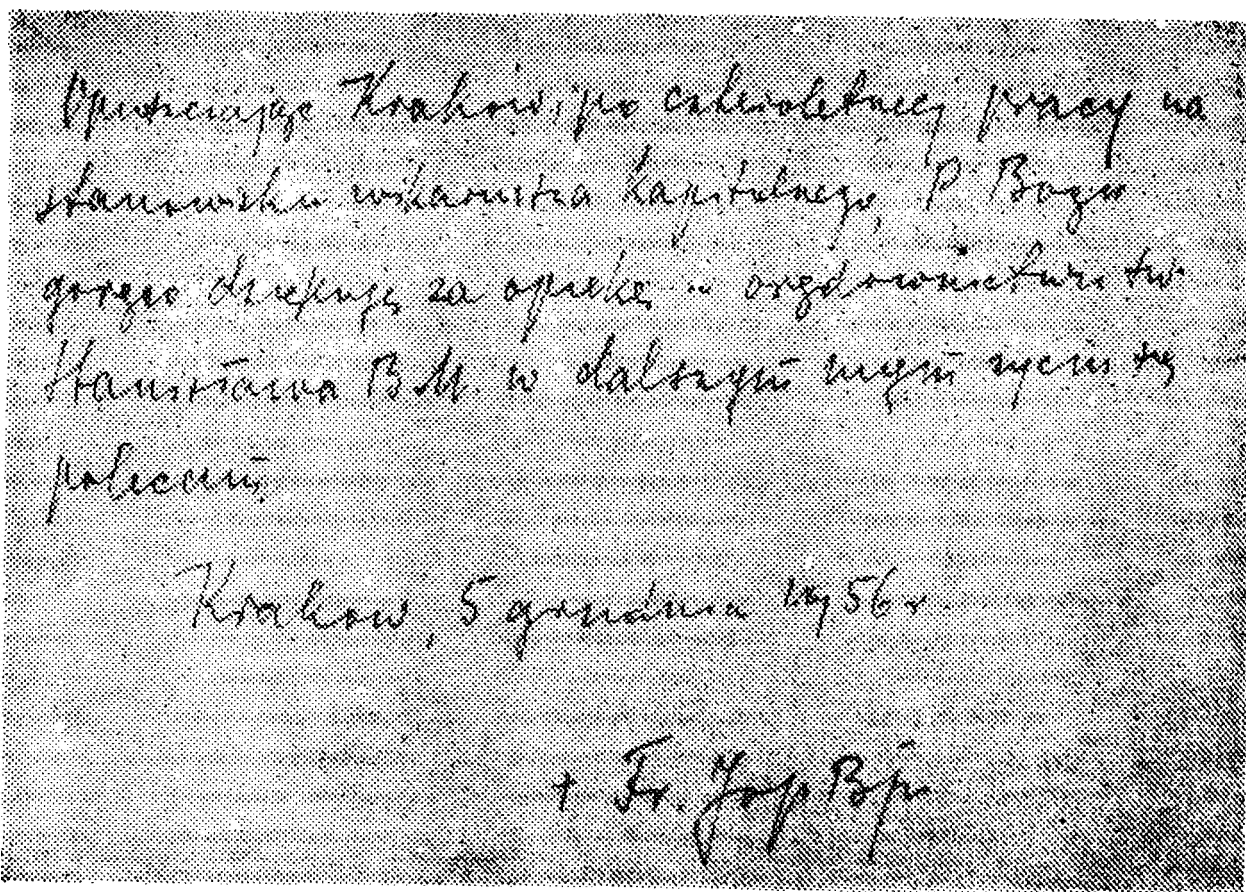 Opuszczając Kraków, po czteroletniej pracy na
stanowisku wikariusza kapitulnego, P. Bogu
gorąco dziękuję za opiekę i orędownictwu św.
Stanisława B.M. w dalszym mym życiu się
polecam.
Kraków, 5 grudnia 1956 r.
+ Fr. Jop Bp